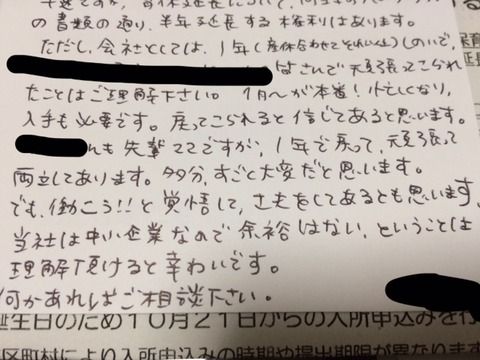 の書類の通り、半年延長する権利はあります。
ただし、会社としては、1年(産休合わせてそれ以上)のいて、
はさんで頑張ってこられ
たことはご理解下さい。1月〜が本番!忙しくなり、
人手も必要です。戻ってこられると信じてあると思います。
んも先輩ママですが、1年で戻って、頑張って
両立してあります。多分、すごと大変だと思います。
でも、働こう!!と覚悟して、工夫をしてあるとも思います。
当社は中小企業なので余裕はない、ということは
理解頂けると幸わいです。
何かあればご相談下さい。
誕生日のため10月21日からの入所申込みを行
区町村により入所申込みの時期や提出期限が異なります